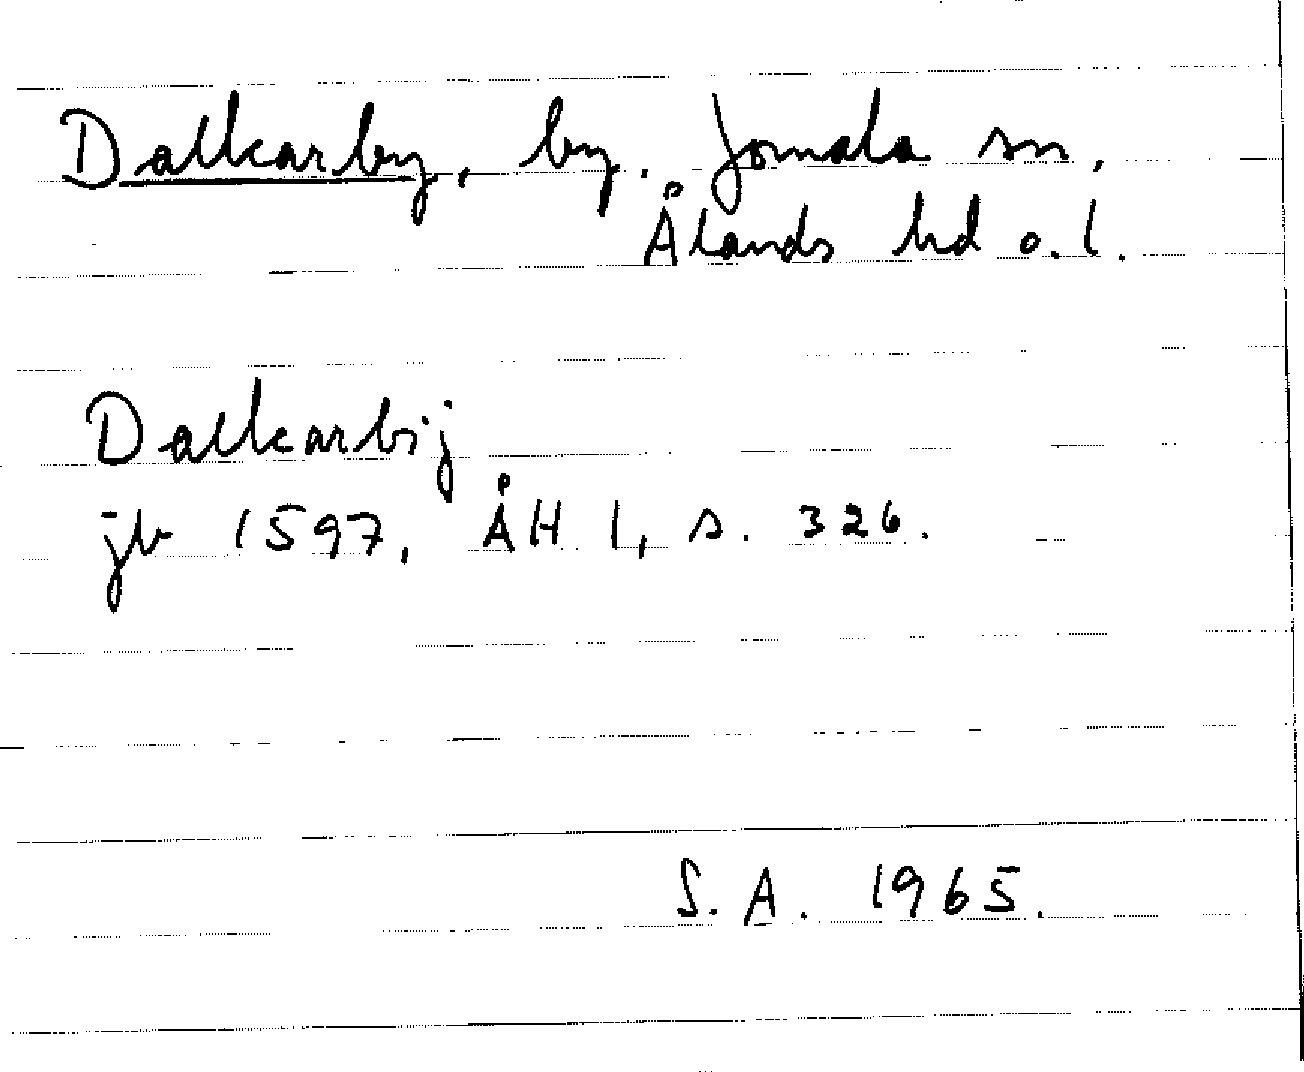 Dalkarby, by. Jomala sn,
Ålands hd o. l.
Dalkarbij
jb 1597, ÅH I, s. 326.
S. A. 1965.